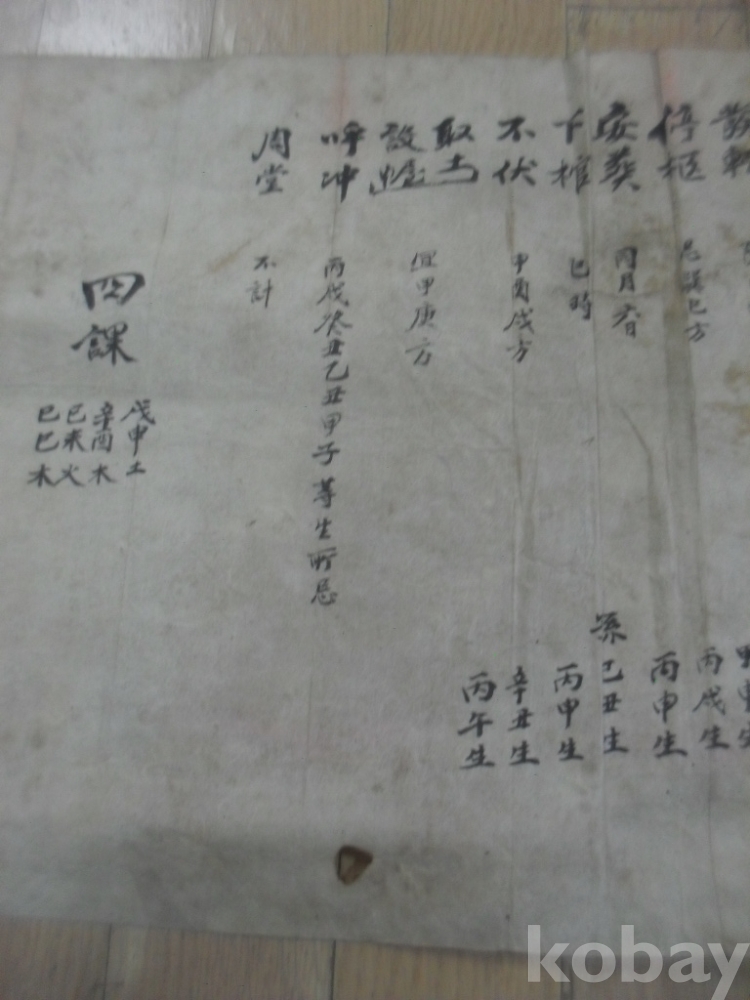 停柩 忌巽巳方 丙戌生
安葬 同月 丙申生
下棺 巳時 孫 己丑生
不伏 申酉戌方 丙申生
取土 辛丑生
設 宜甲庚方 丙午生
呼冲 丙戌癸丑乙丑甲子等生所忌
周堂 不計
四課
戊申土
辛酉木
己未火
己巳木
kobay